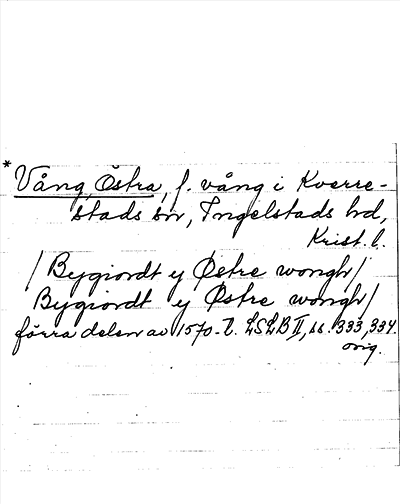 * Vång, Östra, f. vång i Kverre-
stads sn, Ingelstads hd,
Krist. l.
/ Bygiordt ÿ Østre wongh /
Bygiordt ÿ Østre wongh /
förra delen av 1570-t. LSLB II, ss. 333, 334.
orig.